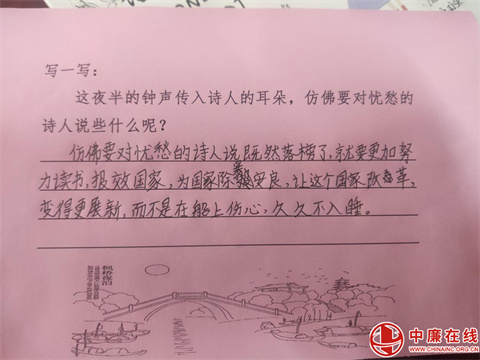 写一写：
这夜半的钟声传入诗人的耳朵，仿佛要对忧愁的
诗人说些什么呢？
仿佛要对忧愁的诗人说既然落榜了，就要更加努
力读书，报效国家，为国家除暴安良，让这个国家改革，
变得更展新，而不是在船上伤心，久久不入睡。
枫桥夜泊
中廉在线
WWW.CHINAINC.ORG.CN